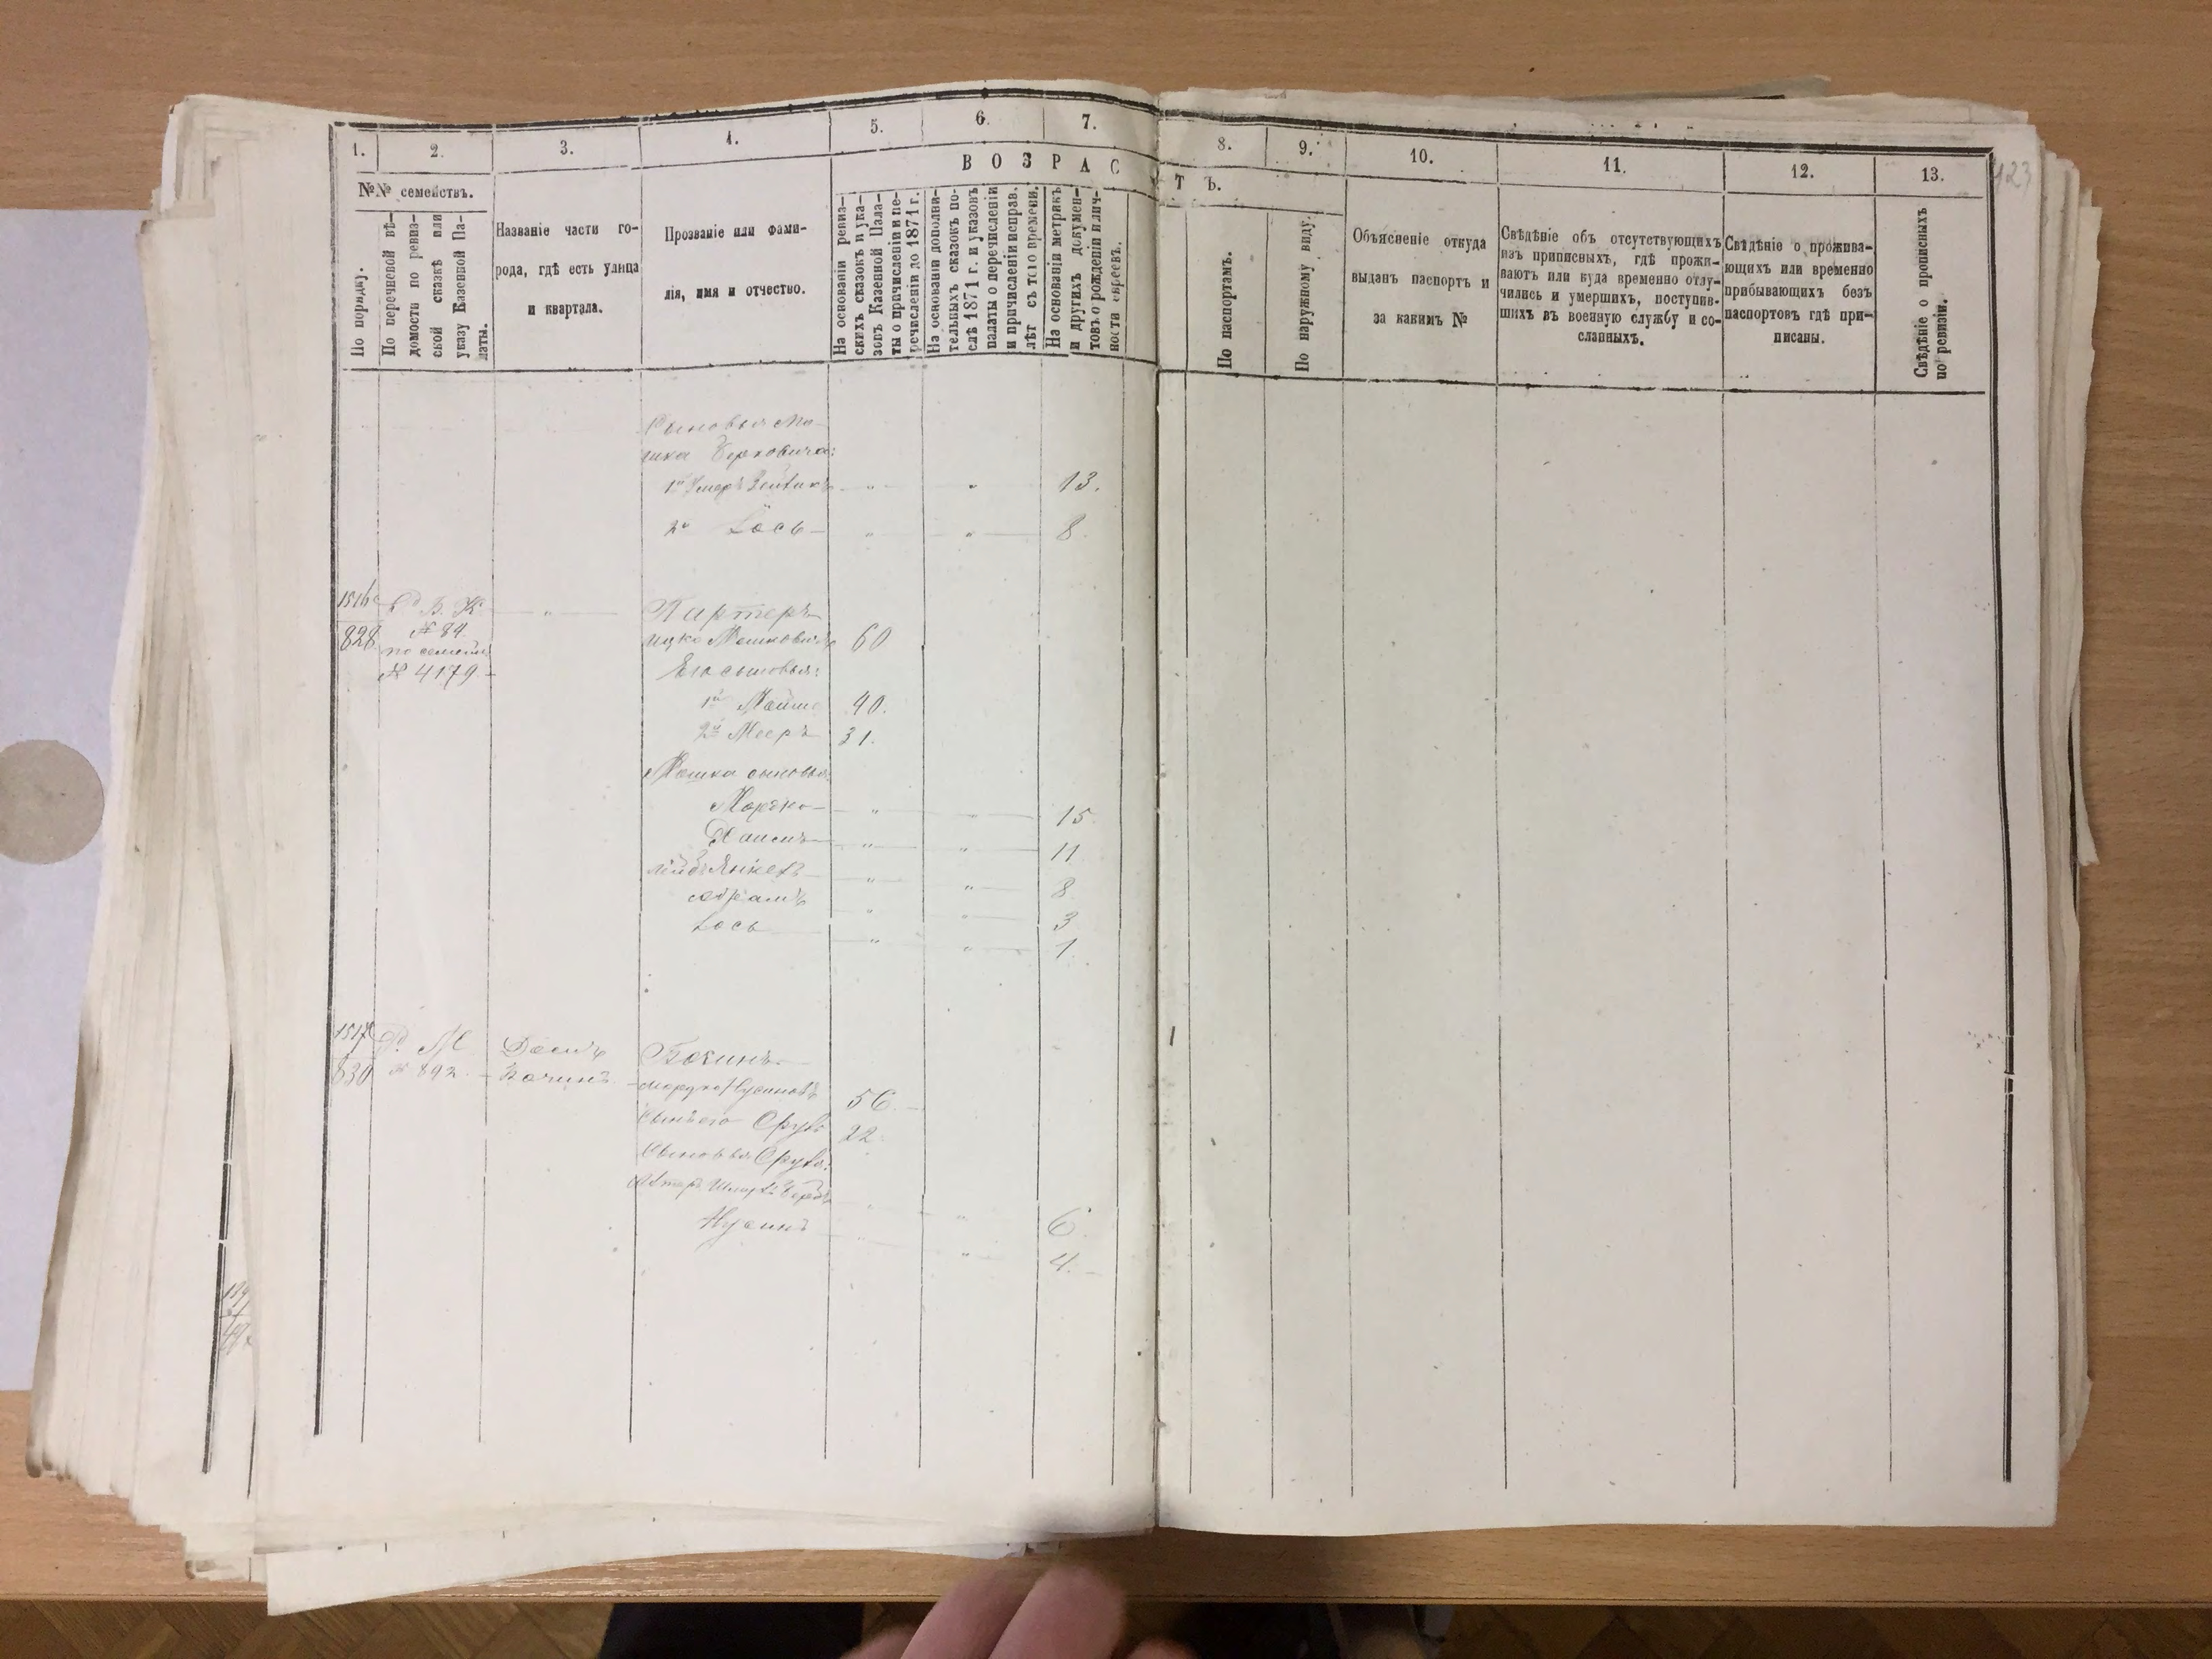 1.
2.
3.
4.
5.
6.
7.
8.
9.
10.
11.
12.
13.
423
ВОЗРАС
ТЪ.
№№ семействъ.
По порядку.
По перечневой вѣ-
домости по ревиз-
ской сказкѣ или
указу Казенной Па-
латы.
Названіе части го-
рода, гдѣ есть улица
и квартала.
Прозваніе или фами-
лія, имя и отчество.
На основаніи ревиз-
скихъ сказокъ и ука-
зовъ Казенной Пала-
ты о причисленіи и пе-
речисленіи до 1871 г.
На основаніи дополни-
тельныхъ сказокъ по-
слѣ 1871 г. и указовъ
палаты о перечисленіи
и причисленіи исправ.
лѣт съ того времени.
На основаніи метрикъ
и другихъ докумен-
товъ о рожденіи и лич-
ности евреевъ.
По паспортамъ.
По наружному виду.
Объясненіе откуда
выданъ паспортъ и
за какимъ №
Свѣдѣніе объ отсутствующихъ
изъ приписныхъ, гдѣ прожи-
ваютъ или куда временно отлу-
чились и умершихъ, поступив-
шихъ въ военную службу и со-
сланныхъ.
Свѣдѣніе о прожива-
ющихъ или временно
прибывающихъ безъ
паспортовъ гдѣ при-
писаны.
Свѣдѣніе о прописныхъ
по ревизіи.
Сыновья Мо-
шка Берковича:
1й 13.
2й Іось 8.
1516
828
Б. К.
№ 84
по семейн
№ 4179.
Партеръ
Ицко Мошковичъ 60
Его сыновья:
1й Мойше 40.
2й Мееръ 31.
Мошка сыновья:
Мордко 15.
Хаимъ 11
Янкель 8
Абрамъ 3
Іось 1.
1517
830
М
№ 892.
Бокинъ
Мордко Нусиновъ 56.
Сынъ его Срулъ 22.
Сыновья Сруля:
6.
Нусинъ 4.